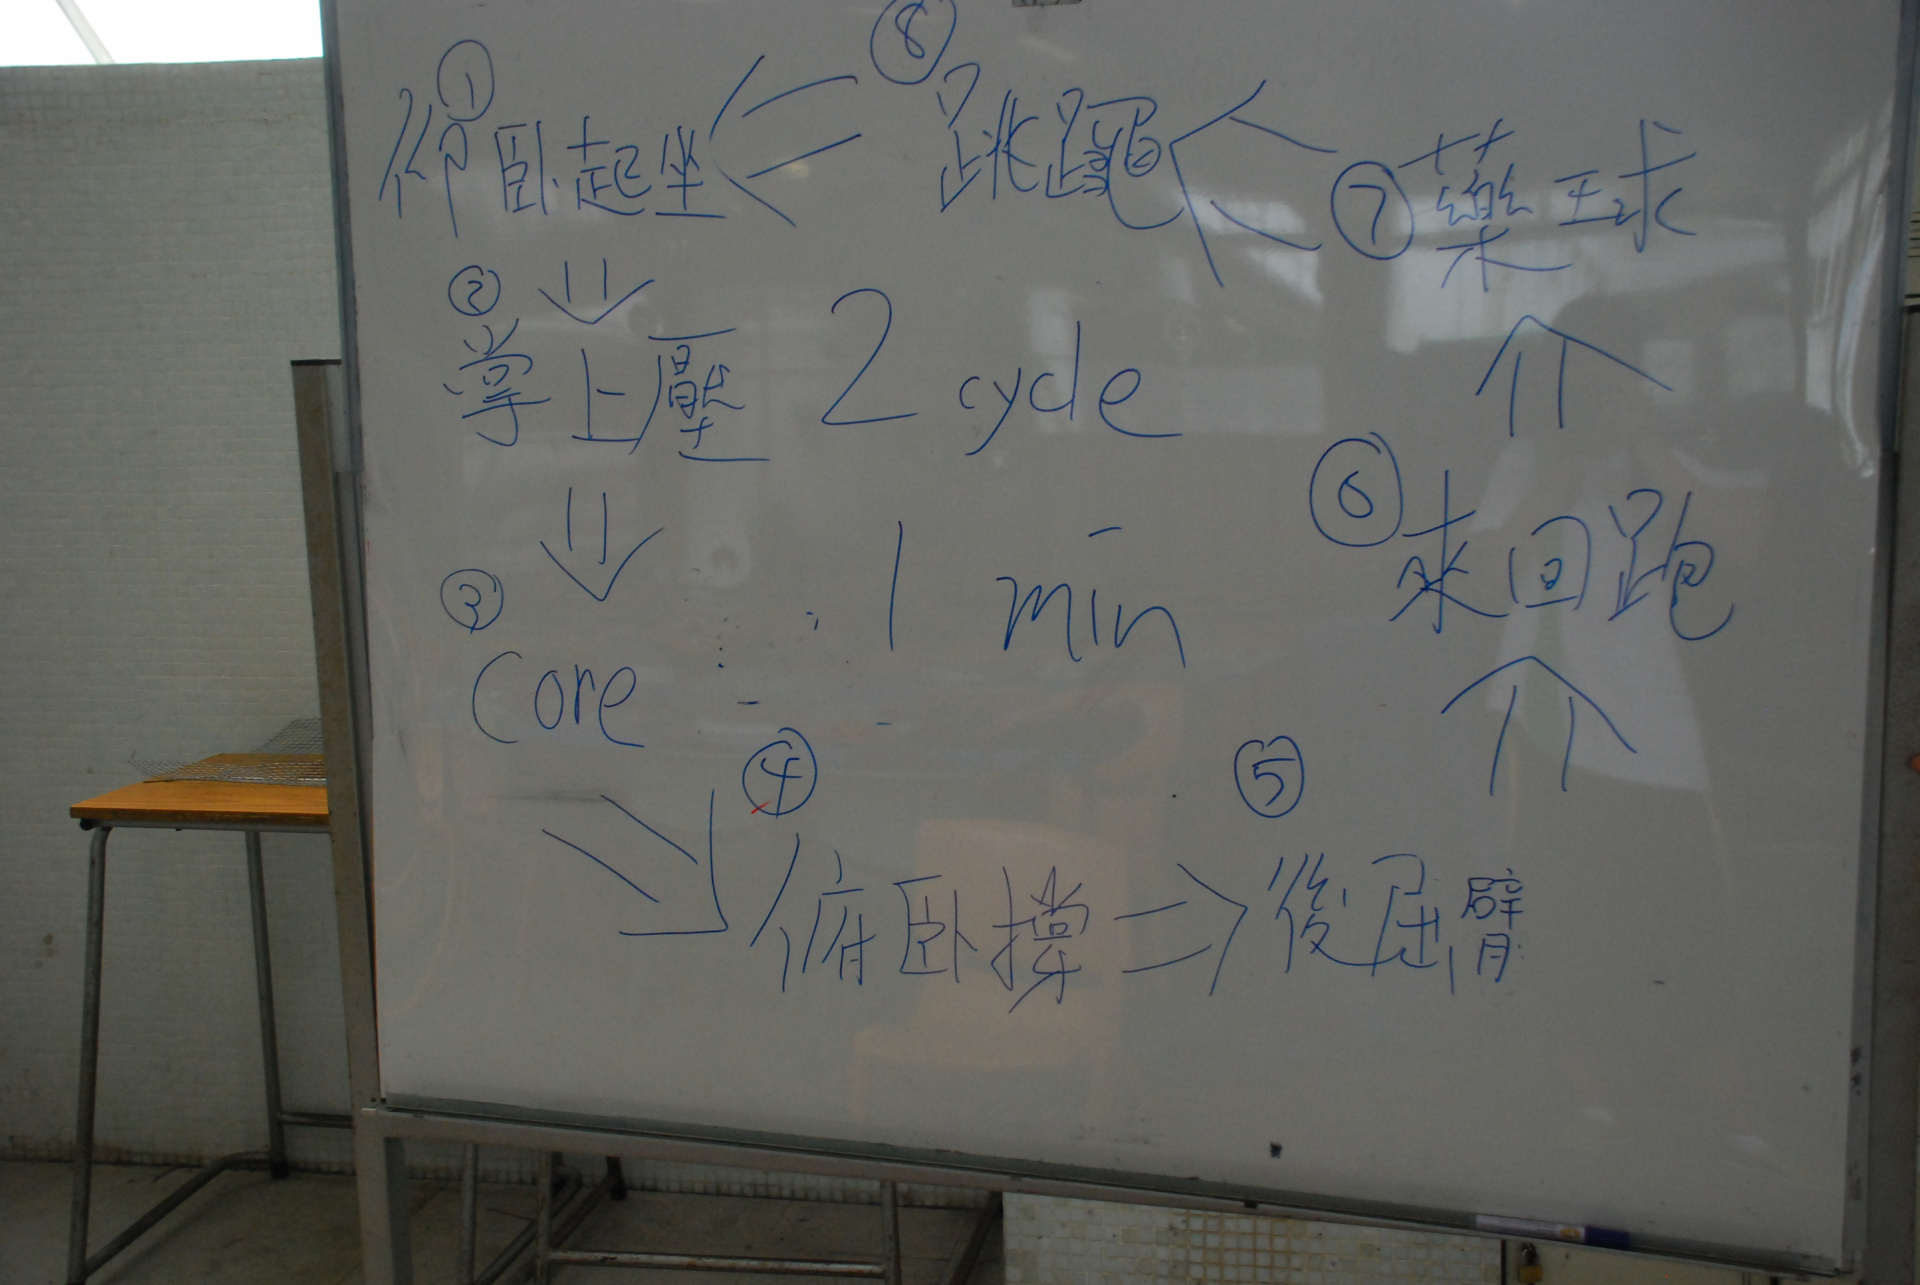 ① 仰卧起坐
② 掌上壓
③ core
④ 俯卧撑
⑤ 後屈臂
⑥ 來回跑
⑦ 藥球
⑧ 跳繩
2 cycle
1 min